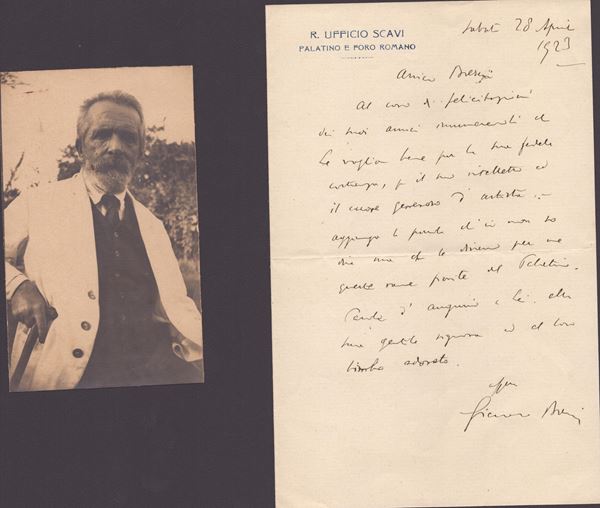 R. UFFICIO SCAVI
PALATINO E FORO ROMANO
Sabato 28 Aprile
1923
Amico
Al coro di felicitazioni
dei suoi amici innumerevoli che
Le voglion bene per la sua fedele
costanza, per il suo intelletto ed
il cuore generoso d'artista
aggiungo la parola di chi non
queste rare piante del Palatino.
Parola d'augurio a Lei, alla
sua gentile signora ed al loro
bimbo adorato.
Giacomo Boni